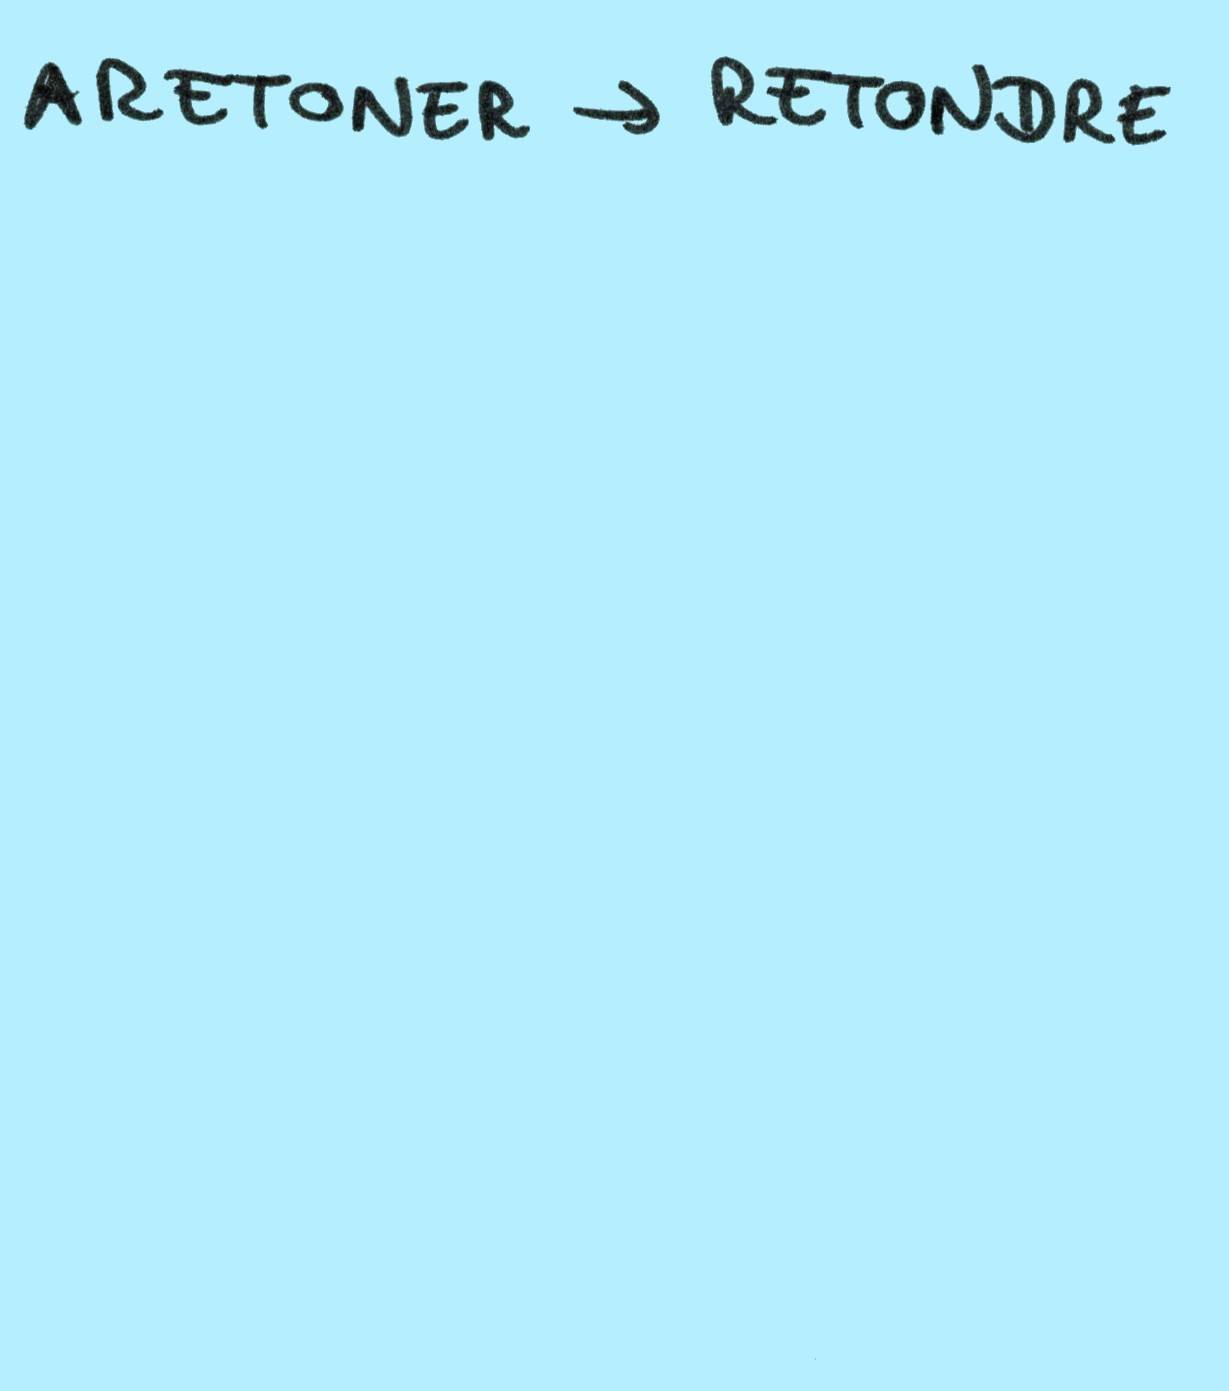 ARETONER → RETONDRE